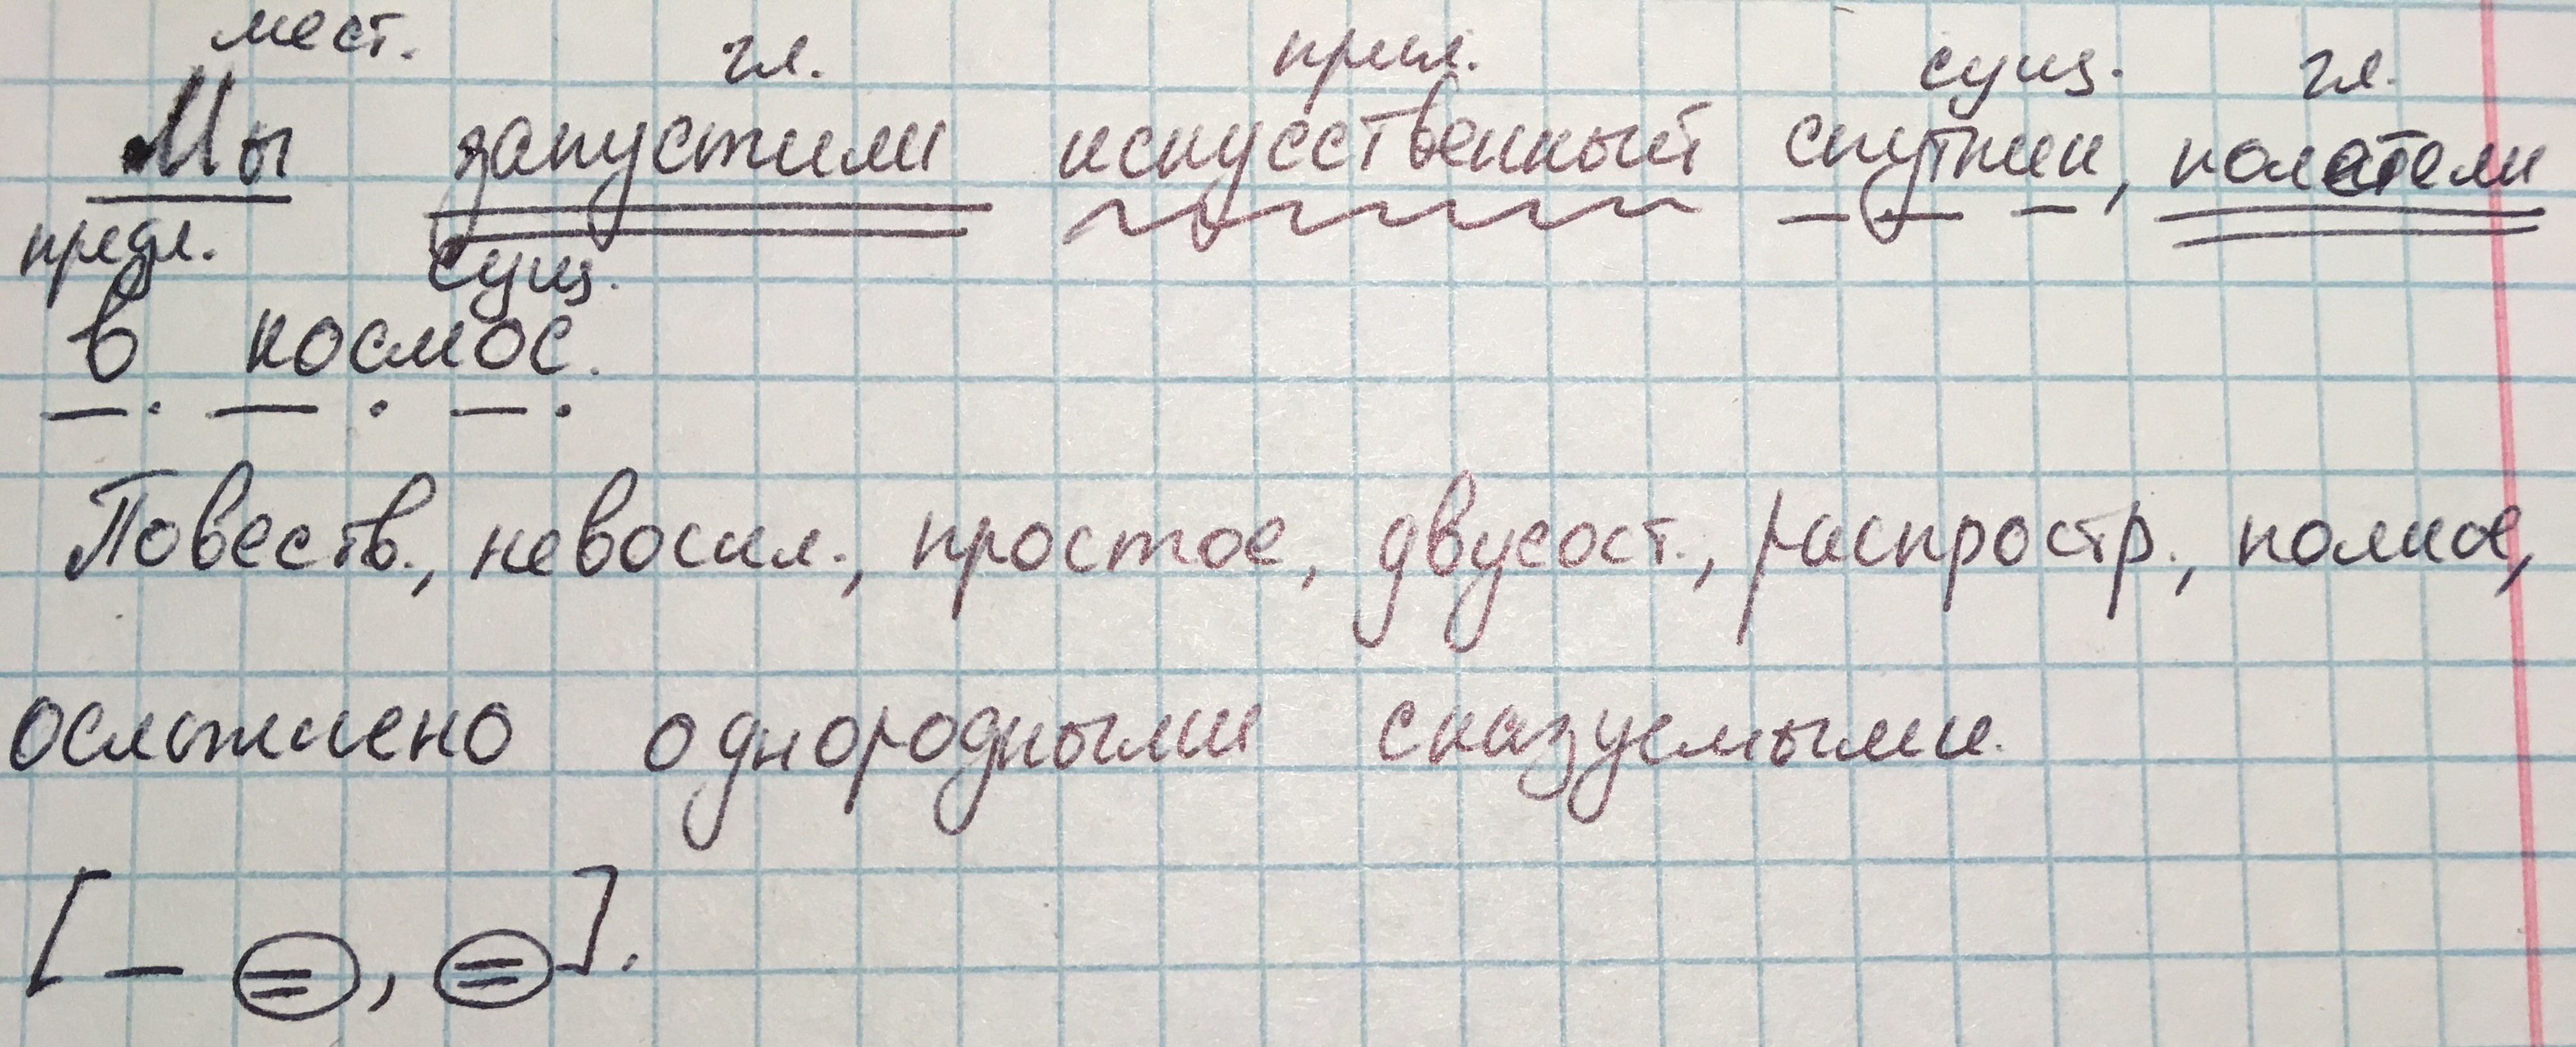 мест. гл. прил. сущ. гл.
Мы запустили искусственный спутник, полетели
предл. сущ.
в космос.
Повеств., невоскл., простое, двусост., распростр., полное,
осложнено однородными сказуемыми.
[– =, =].